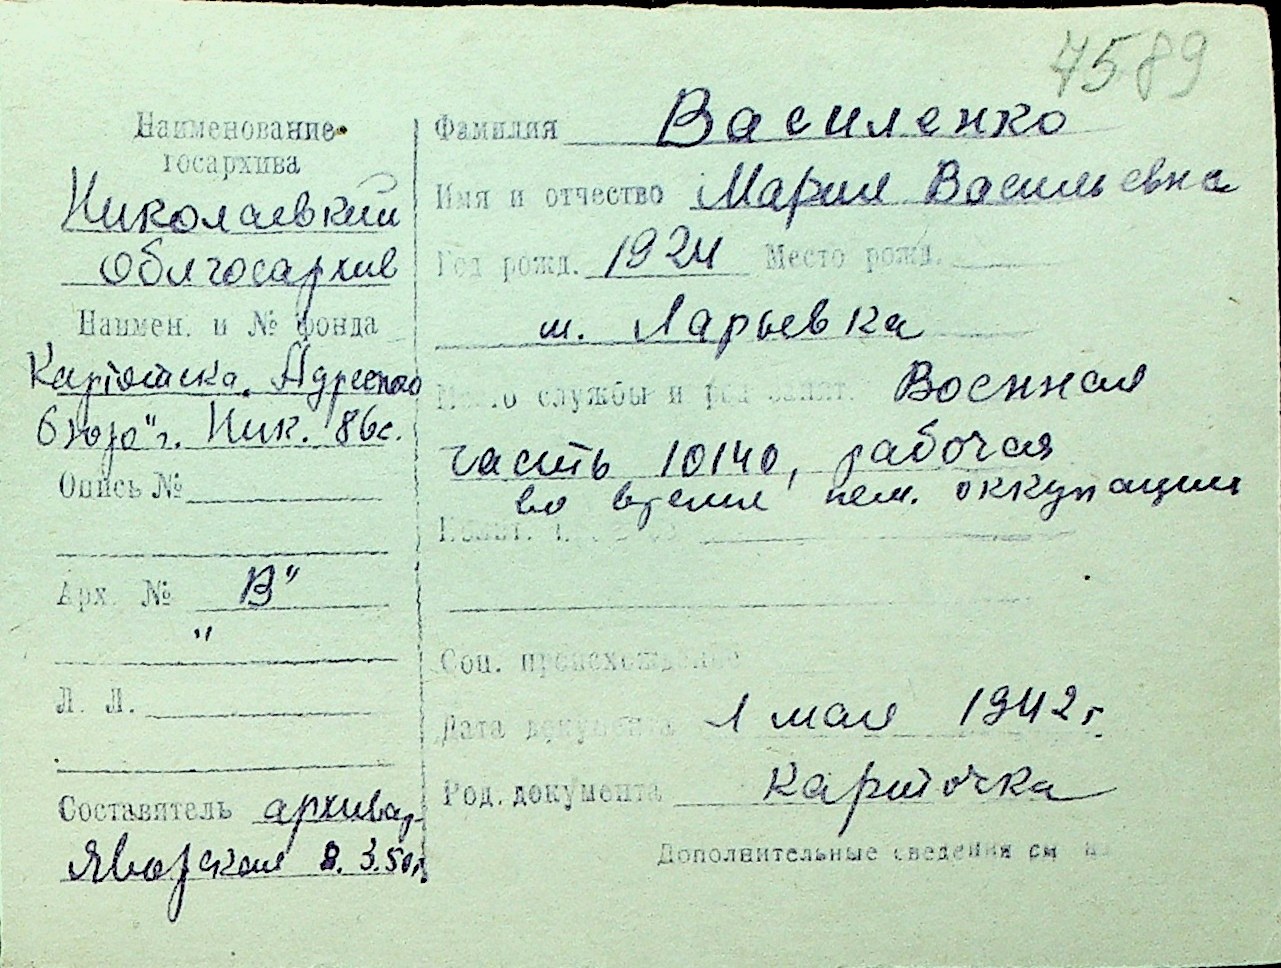 7589
Наименование
госархива
Николаевкий
Облгосархив
Наимен. и № фонда
Картотека "Адресного
бюро" г. Ник. 86с.
Опись №
Арх. № "В"
"
Л. Л.
Составитель архивар.
Яворская 8.3.50г.
Фамилия Василенко
Имя и отчество Мария Васильевна
Год рожд. 1924 Место рожд.
м. Ларьевка
Место службы и род занят. Военная
часть 10140, рабочая
во время нем. оккупации
Соц. происхождение
Дата документа 1 мая 1942 г
Род. документа карточка
Дополнительные сведения см